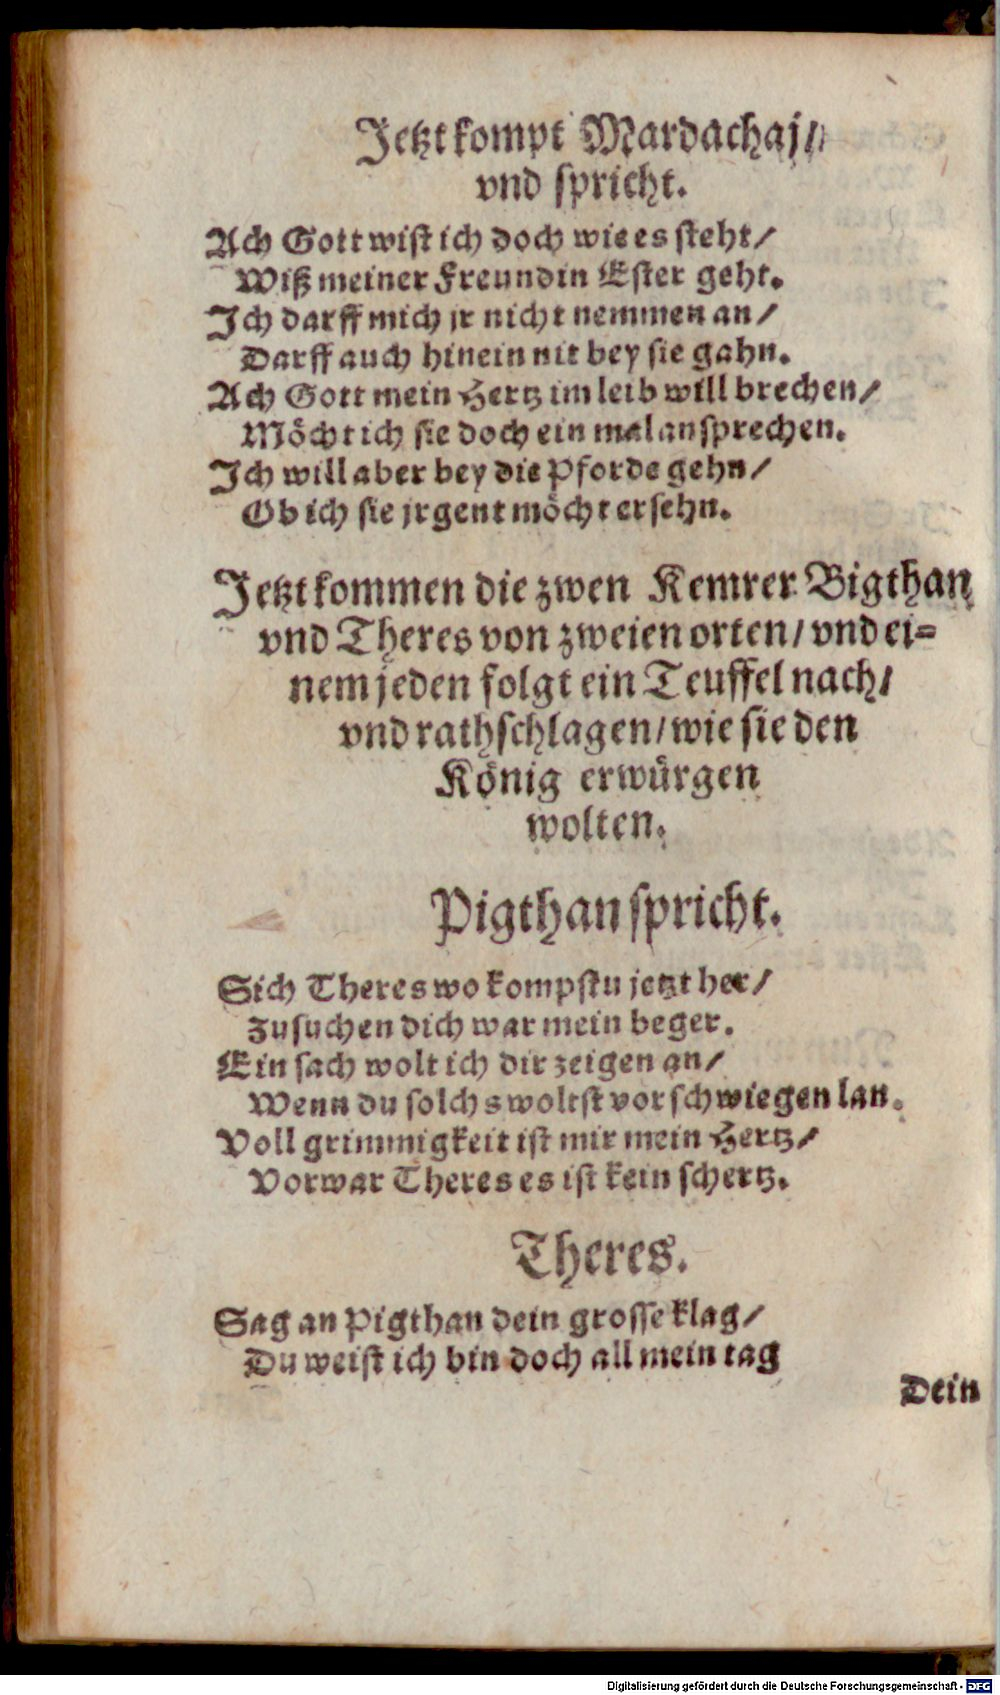 Jetzt kompt Mardachaj/
vnd spricht.
Ach Gott wist ich doch wie es steht/
Wiß meiner Freundin Ester geht.
Ich darff mich jr nicht nemmen an/
Darff auch hinein nit bey sie gahn.
Ach Gott mein Hertz im leib will brechen/
Möcht ich sie doch ein mal ansprechen.
Ich will aber bey die Pforde gehn/
Ob ich sie jrgent möcht ersehn.
Jetzt kommen die zwen Kemrer Bigthan
vnd Theres von zweien orten/ vnd ei-
nem jeden folgt ein Teuffel nach/
vnd rathschlagen/ wie sie den
König erwürgen
wolten.
Pigthan spricht.
Sich Theres wo kompstu jetzt her/
Zu suchen dich war mein beger.
Ein sach wolt ich dir zeigen an/
Wenn du solchs woltst vorschwiegen lan.
Voll grimmigkeit ist mir mein Hertz/
Vorwar Theres es ist kein schertz.
Theres.
Sag an Pigthan dein grosse klag/
Du weist ich bin doch all mein tag
Dein
Digitalisierung gefördert durch die Deutsche Forschungsgemeinschaft - DFG